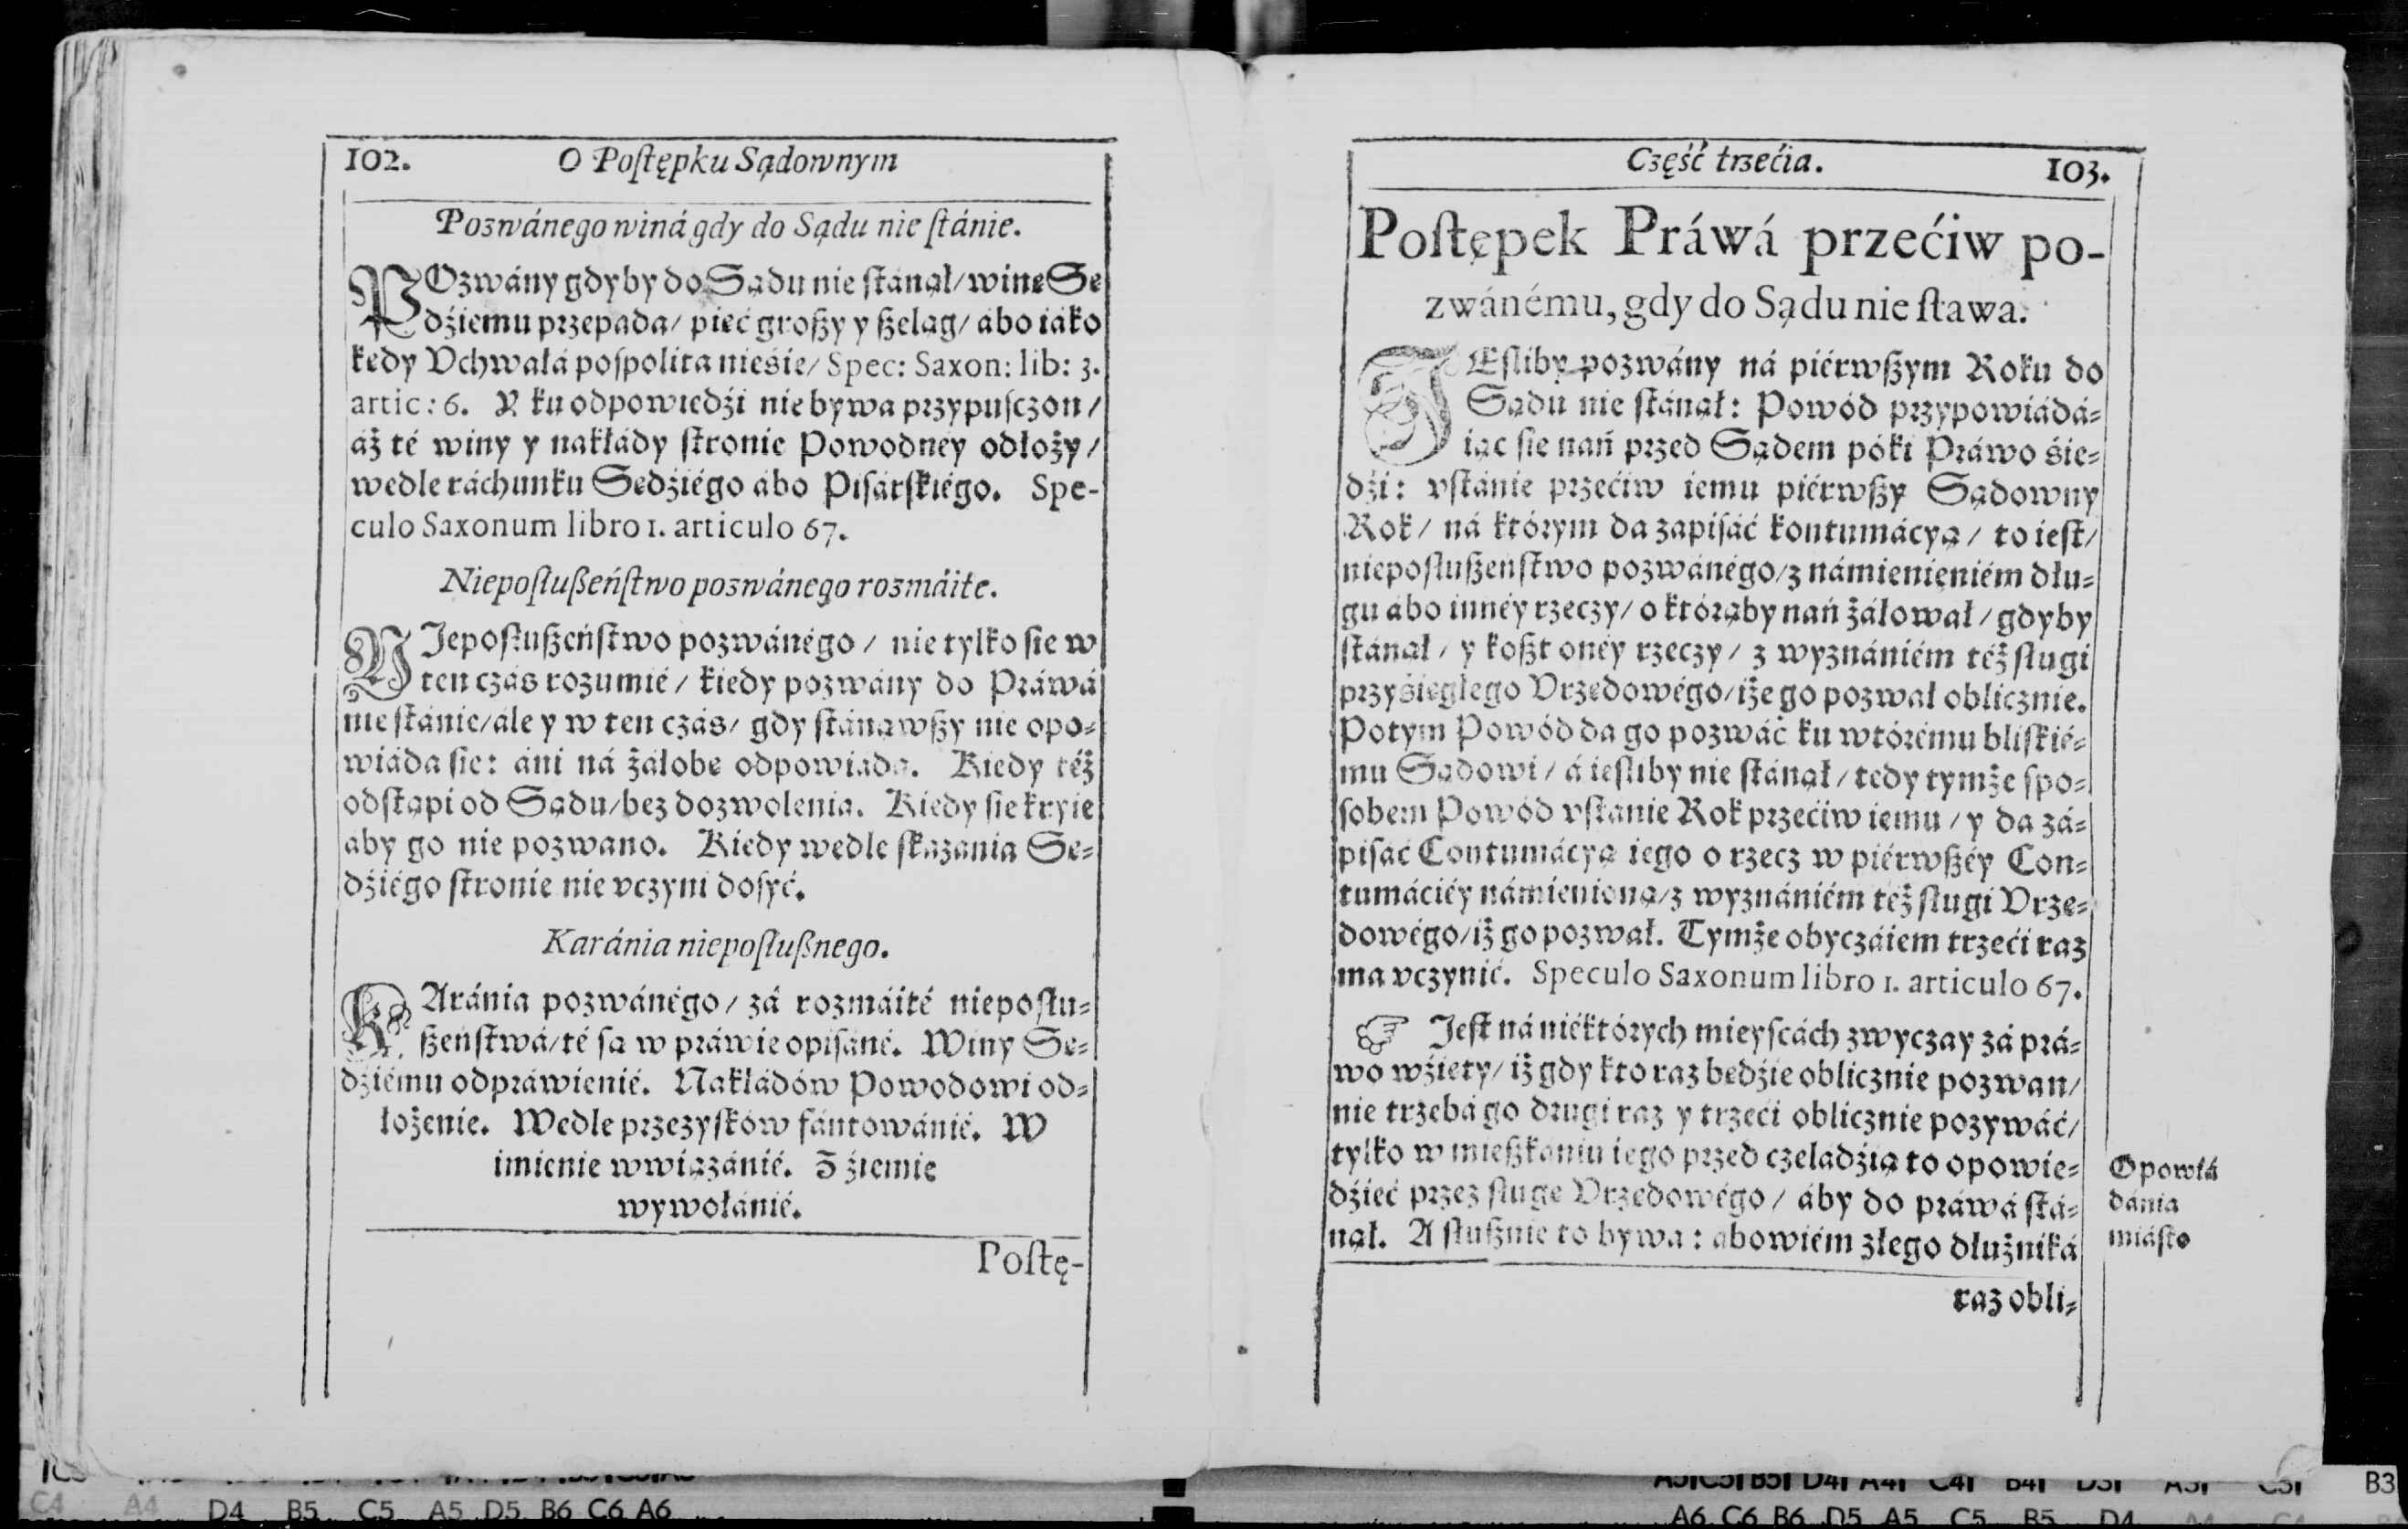 102. O Postępku Sądownym
Pozwánego winá gdy do Sądu nie stánie.
POzwány gdyby do Sądu nie stánął/ winę Sę
dźiemu przepada/ pięć großy y ßeląg/ ábo iáko
kędy Vchwałá pospolita nieśie/ Spec: Saxon: lib: 3.
artic: 6. Y ku odpowiedźi nie bywa przypusczon/
áż té winy y nakłády stronie Powodnéy odłoży/
wedle ráchunku Sędźiégo ábo Pisárskiégo. Spe-
culo Saxonum libro 1. articulo 67.
Nieposłußeństwo pozwánego rozmáite.
NIeposłußeństwo pozwánégo/ nie tylko sie w
ten czás rozumié/ kiedy pozwány do Práwá
nie stánie/ ále y w ten czás/ gdy stánąwßy nie opo-
wiáda sie: áni ná żáłobę odpowiada. Kiedy też
odstąpi od Sądu/ bez dozwolenia. Kiedy sie kryie
aby go nie pozwano. Kiedy wedle skazania Sę-
dźiégo stronie nie vczyni dosyć.
Karánia nieposłußnego.
KAránia pozwánégo/ zá rozmáité nieposłu-
ßeństwá/ té są w práwie opisáné. Winy Sę-
dźiému odpráwienié. Nakłádów Powodowi od-
łożenie. Wedle przezysków fántowánié. W
imienie wwiązánié. Z źiemie
wywołánié.
Postę-
Część trzećia. 103.
Postępek Práwá przećiw po-
zwánému, gdy do Sądu nie stawa.
IEsliby pozwány ná piérwßym Roku do
Sądu nie stánął: Powód przypowiádá-
iąc sie nań przed Sądem póki Práwo śie-
dźi: vstánie przećiw iemu piérwßy Sądowny
Rok/ ná którym da zapisáć kontumácyą/ to iest/
nieposłußeństwo pozwánégo/ z námienieniém dłu-
gu ábo innéy rzeczy/ o którąby nań żáłował/ gdyby
stánął/ y koßt onéy rzeczy/ z wyznániém też sługi
przyśięgłego Vrzędowégo/ iże go pozwał oblicznie.
Potym Powód da go pozwáć ku wtórému bliskié-
mu Sądowi/ á iesliby nie stánął/ tedy tymże spo-
sobem Powód vstanie Rok przećiw iemu/ y da zá-
pisáć Contumácyą iego o rzecz w piérwßéy Con-
tumáciéy námienioną/ z wyznániém też sługi Vrzę-
dowégo/ iż go pozwał. Tymże obyczáiem trzeći raz
ma vczynić. Speculo Saxonum libro 1. articulo 67.
☞ Jest ná niéktórych mieyscách zwyczay zá prá-
wo wźięty/ iż gdy kto raz będźie oblicznie pozwan/
nie trzebá go drugi raz y trzeći oblicznie pozywáć/
tylko w mießkaniu iego przed czeladźią to opowie-
dźieć przez sługę Vrzędowégo/ áby do práwá stá-
nął. A słußnie to bywa: abowiém złego dłużniká
Opowiá
dánia
miásto
raz obli-